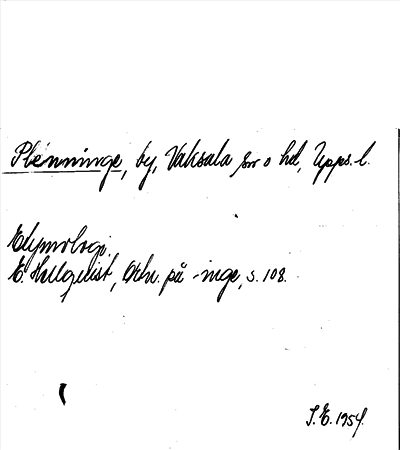 Plenninge, by, Vaksala sn o hd, Upps. l.
Etymologi.
E. Hellquist, Ortn. på -inge, s. 108.
S.E. 1954.